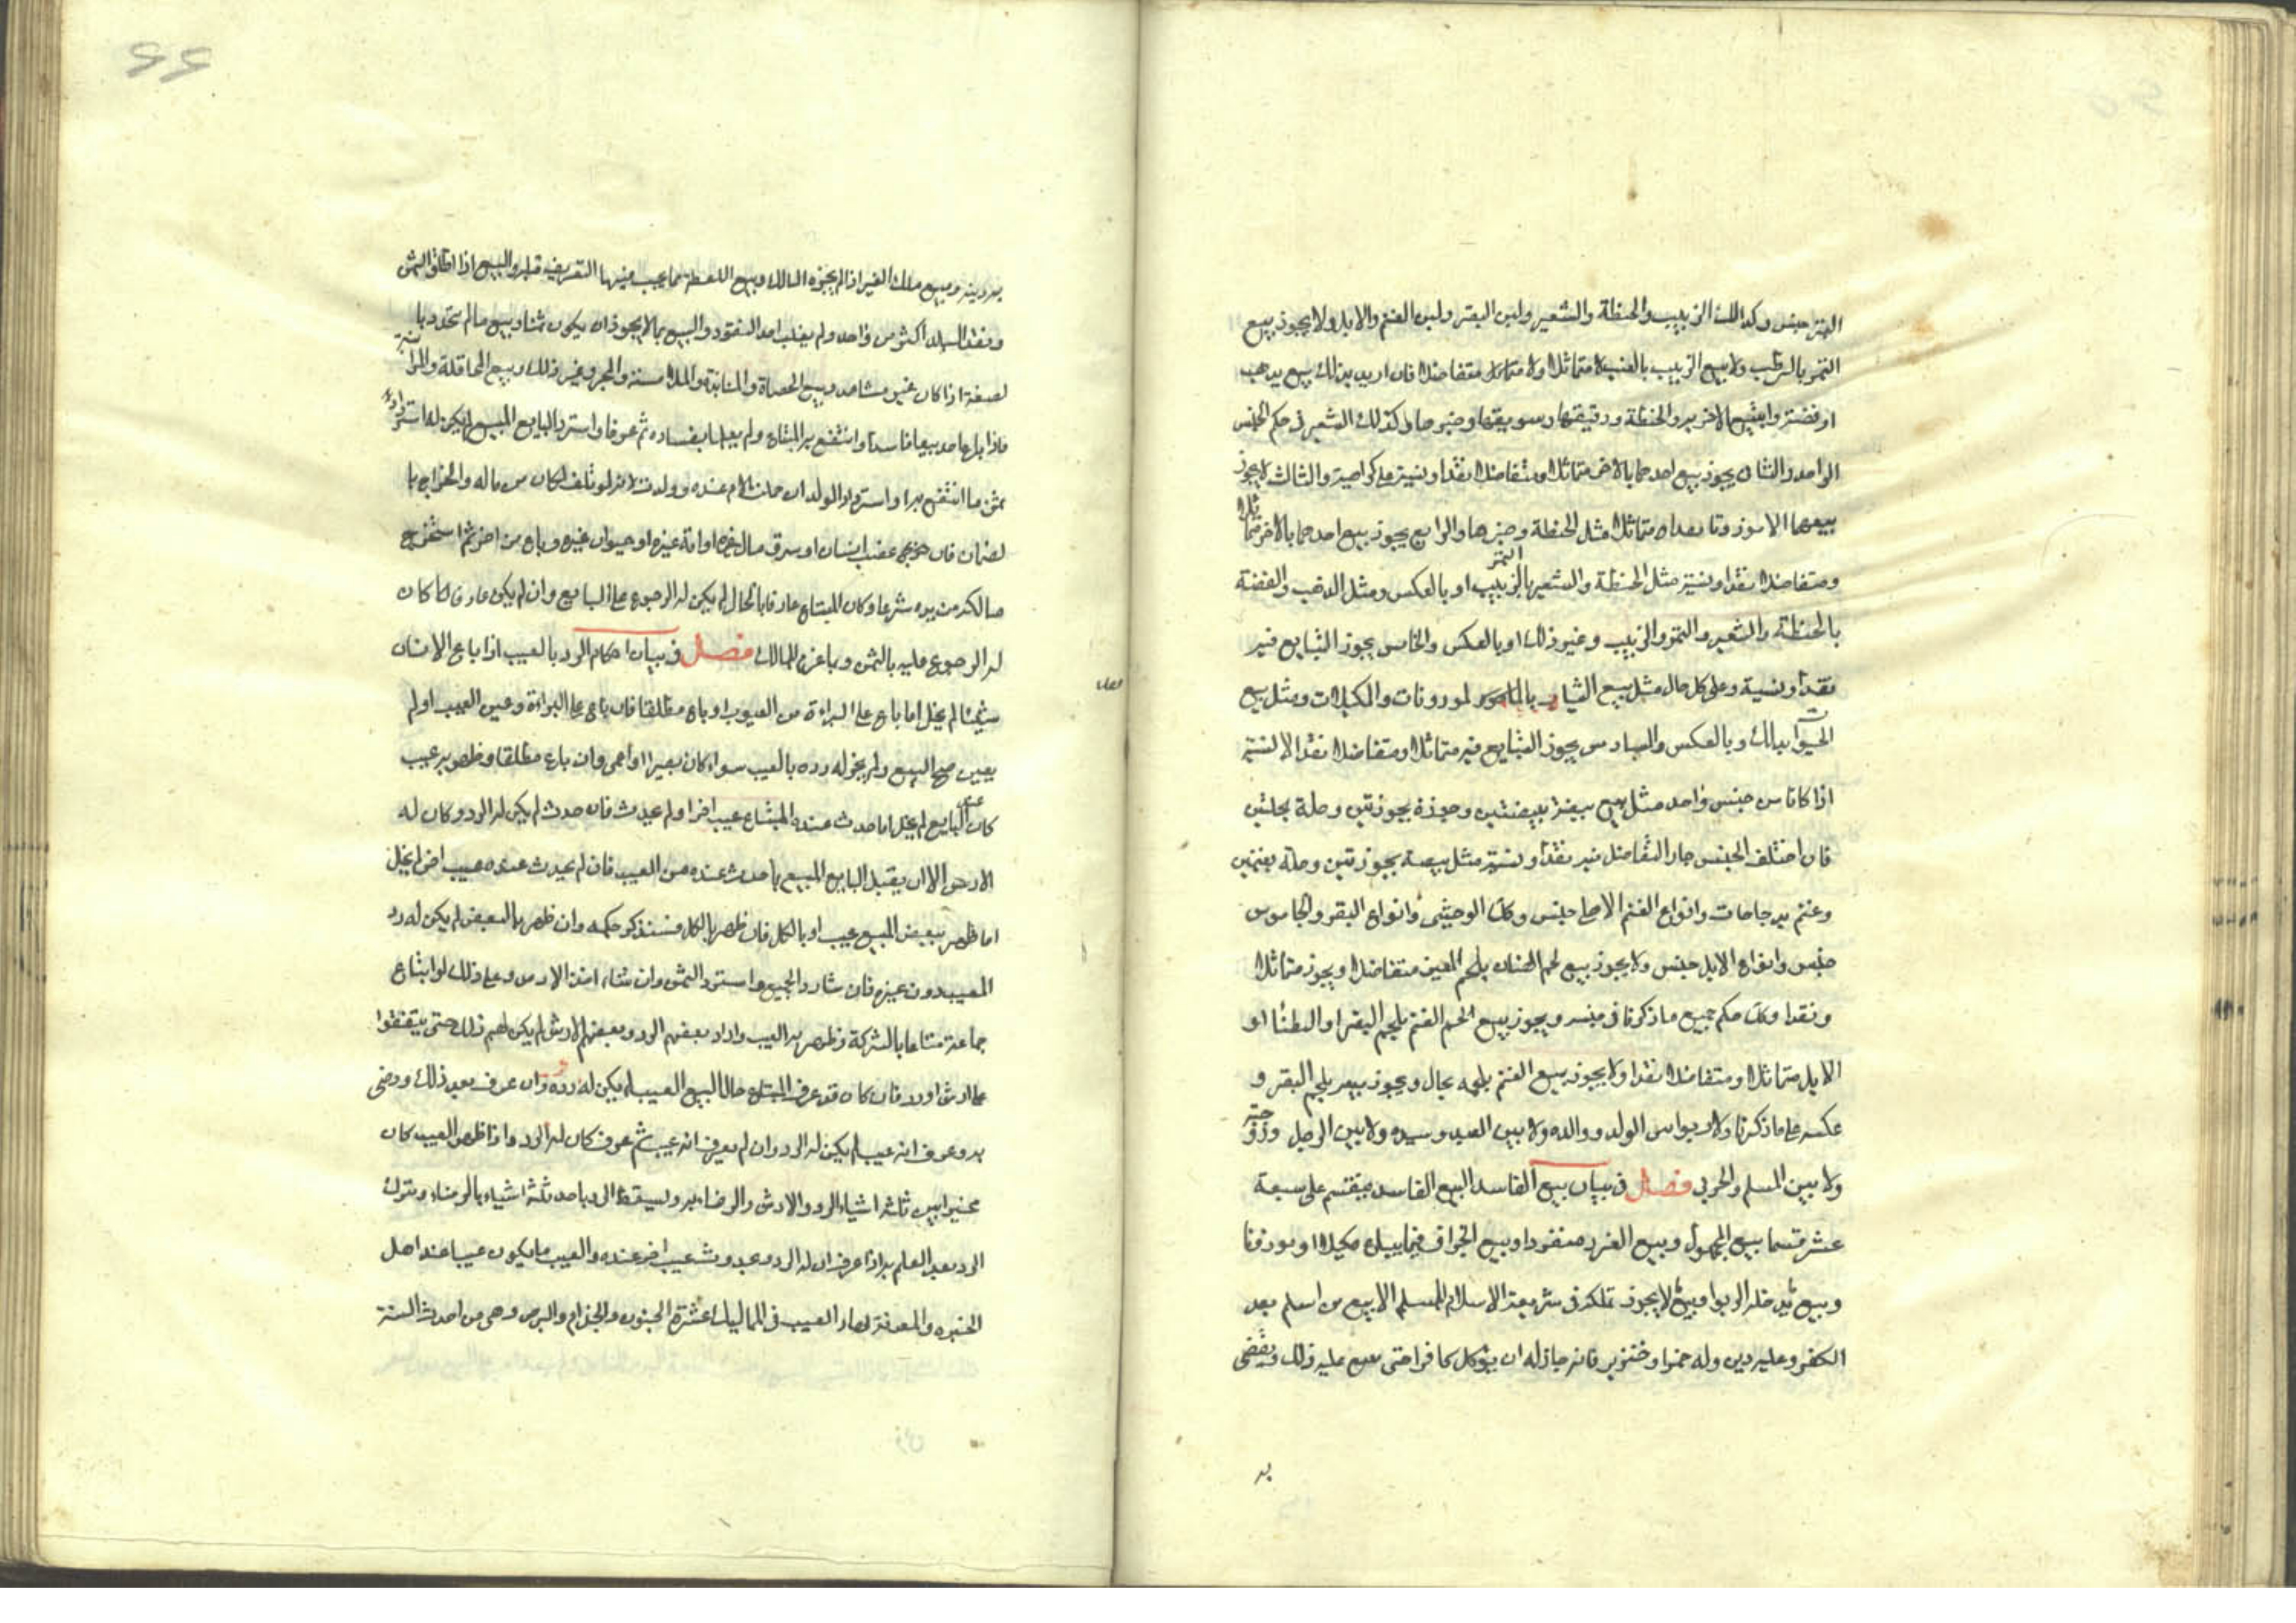 التمر جنس وكذلك الزبيب والحنطة والشعير ولبن البقر ولبن الغنم والابل ولا يجوز بيع
التمر بالرطب ولا بيع الزبيب بالعنب لا متماثلا ولا متفاضلا فان اريد بذلك بيع بذهب
او فضة وابتيع الاخر به والحنطة ودقيقها وسويقها وخبزها وكذلك الشعير في حكم الجنس
الواحد والثاني يجوز بيع احدهما بالاخر متماثلا ومتفاضلا نقدا ونسية على كراهية والثالث لا يجوز
بيعهما الا موزونا بعداه متماثلا مثل الحنطة وخبزها والرابع يجوز بيع احدهما بالاخر متماثلا
ومتفاضلا نقدا ونسية مثل الحنطة والشعير بالتمر الزبيب او بالعكس ومثل الذهب والفضة
بالحنطة والشعير والتمر والزبيب وغير ذلك او بالعكس والخامس يجوز التبايع فيه
نقدا ونسية وعلى كل حال مثل بيع الثياب لموزونات والمكيلات ومثل بيع
الحيوان بذلك وبالعكس والسادس يجوز التبايع فيه متماثلا ومتفاضلا نقدا لا نسية
اذا كانا من جنس واحد مثل بيع بيضة ببيضتين وجوزة بجوزتين وحلة بحلتين
فان اختلف الجنس جاز التفاضل فيه نقدا ونسية مثل بيضة بجوزتين وحلة بغنمين
وغنم بدجاجات وانواع الغنم الاهلي جنس وكذا الوحشي وانواع البقر والجاموس
جنس وانواع الابل جنس ولا يجوز بيع لحم الضان بلحم المعز متفاضلا ويجوز متماثلا
ونقدا وكذا حكم جميع ما ذكرنا في جنسه ويجوز بيع لحم الغنم بلحم البقر او الظباء او
الابل متماثلا ومتفاضلا نقدا ولا يجوز بيع الغنم بلحمه بحال ويجوز بيعه بلحم البقر و
عكسه على ما ذكرنا ولا ربوا بين الولد ووالده ولا بين العبد وسيده ولا بين الرجل وزوجته
ولا بين المسلم والحربي فصل في بيان بيع الفاسد البيع الفاسد ينقسم على سبعة
عشر قسما بيع المجهول وبيع الغرر منفردا وبيع الجزاف فيما يباع مكيلا او موزونا
وبيع يدخله الربوا وبيع لا يجوز تملكه في شريعة الاسلام للمسلم الا بيع من اسلم بعد
الكفر وعليه دين وله خمر او خنزير فانه جاز له ان يوكل كافرا حتى يبيع عليه ذلك ويقضي
به
به دينه وبيع ملك الغير اذا لم يجزه المالك وبيع اللقطة مما يجب فيها التعريف قبله والبيع اذا اطلق الثمن
ونقد البلد اكثر من واحد ولم يغلب احد النقود والبيع بما لا يجوز ان يكون ثمنا وبيع ما لم يتحدد با
لصفة اذا كان غير مشاهد وبيع الحصاة والمنابذة والملامسة والحجر وغير ذلك وبيع المحاقلة والمزابنة
فاذا باع احد بيعا فاسدا وانتفع به المبتاع ولم يعلما بفساده ثم عرفا واسترد البايع المبيع لم يكن له استرداد
ثمن ما انتفع به او استرداد الولد ان حملت الام عنده وولدت لانه لو تلف لكان من ماله والخراج با
لضمان فان غصب انسان او سرق مال غيره او امة غيره او حيوان غيره وباع من اخر ثم استخرج
مالكه من يده شرعا وكان المبتاع عارفا بالحال لم يكن له الرجوع على البايع وان لم يكن عارفا كان
له الرجوع عليه بالثمن وبما غرم للمالك فصل في بيان احكام الرد بالعيب اذا باع الانسان
شيئا لم يخل اما باع على البراءة من العيوب او باع مطلقا فان باع على البراءة وعين العيب او لم
يعين صح البيع ولم يجز له رده بالعيب سواء كان بصيرا او اعمى وان باع مطلقا وظهر به عيب
كان عند البايع لم يخل اما حدث عند المبتاع عيب اخر او لم يحدث فان حدث لم يكن له الرد وكان له
الارش الا ان يقبل البايع المبيع بما حدث عنده من العيب فان لم يحدث عنده عيب اخر لم يخل
اما ظهر ببعض المبيع عيب او بالكل فان ظهر بالكل فسنذكر حكمه وان ظهر بالبعض لم يكن له رد
المعيب دون غيره فان شاء رد الجميع واسترد الثمن وان شاء اخذ الارش وعلى ذلك لو ابتاع
جماعة متاعا بالشركة وظهر به العيب واراد بعضهم الرد وبعضهم الارش لم يكن لهم ذلك حتى يتفقوا
على ارش او رد فان كان قد عرف المبتاع حال البيع العيب لم يكن له رده وان عرف بعد ذلك ورضى
به وعرف انه عيب لم يكن له الرد وان لم يعرف انه عيب ثم عرف كان له الرد واذا ظهر العيب كان
مخيرا بين ثلثة اشياء الرد والارش والرضاء به ويسقط الرد باحد ثلثة اشياء بالرضاء وبترك
الرد بعد العلم به اذا عرف ان له الرد وبحدوث عيب اخر عنده والعيب ما يكون عيبا عند اهل
الخبره والمعرفة فصار العيب في المماليك عشرة الجنون والجذام والبرص وهي من احدث السنة